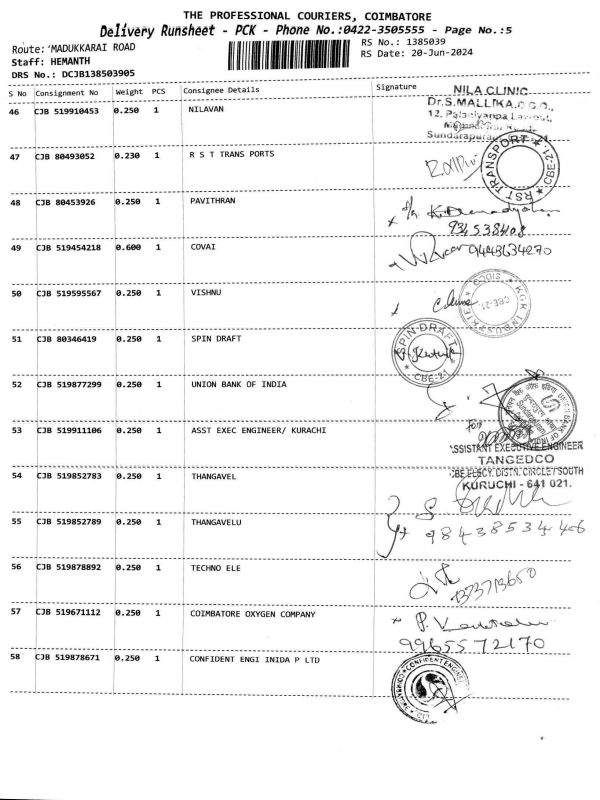 THE PROFESSIONAL COURIERS, COIMBATORE
Delivery Runsheet - PCK - Phone No.:0422-3505555 - Page No.:5
Route: 'MADUKKARAI ROAD
RS No.: 1385039
Staff: HEMANTH
RS Date: 20-Jun-2024
DRS No.: DCJB138503905
S No Consignment No Weight PCS Consignee Details Signature
46 CJB 519910453 0.250 1 NILAVAN
NILA CLINIC
Dr.S.MALLIKA.D.G.O.,
47 CJB 80493052 0.230 1 R S T TRANS PORTS
RST TRANSPORT CBE-21
48 CJB 80453926 0.250 1 PAVITHRAN
49 CJB 519454218 0.600 1 COVAI
50 CJB 519595567 0.250 1 VISHNU
CBE-21
51 CJB 80346419 0.250 1 SPIN DRAFT
SPIN DRAFT CBE-21
52 CJB 519877299 0.250 1 UNION BANK OF INDIA
53 CJB 519911106 0.250 1 ASST EXEC ENGINEER/ KURACHI
For
ASSISTANT EXECUTIVE ENGINEER
TANGEDCO
CBE ELECY. DISTN. CIRCLE / SOUTH
KURUCHI - 641 021.
54 CJB 519852783 0.250 1 THANGAVEL
55 CJB 519852789 0.250 1 THANGAVELU
56 CJB 519878892 0.250 1 TECHNO ELE
57 CJB 519671112 0.250 1 COIMBATORE OXYGEN COMPANY
9965572170
58 CJB 519878671 0.250 1 CONFIDENT ENGI INIDA P LTD